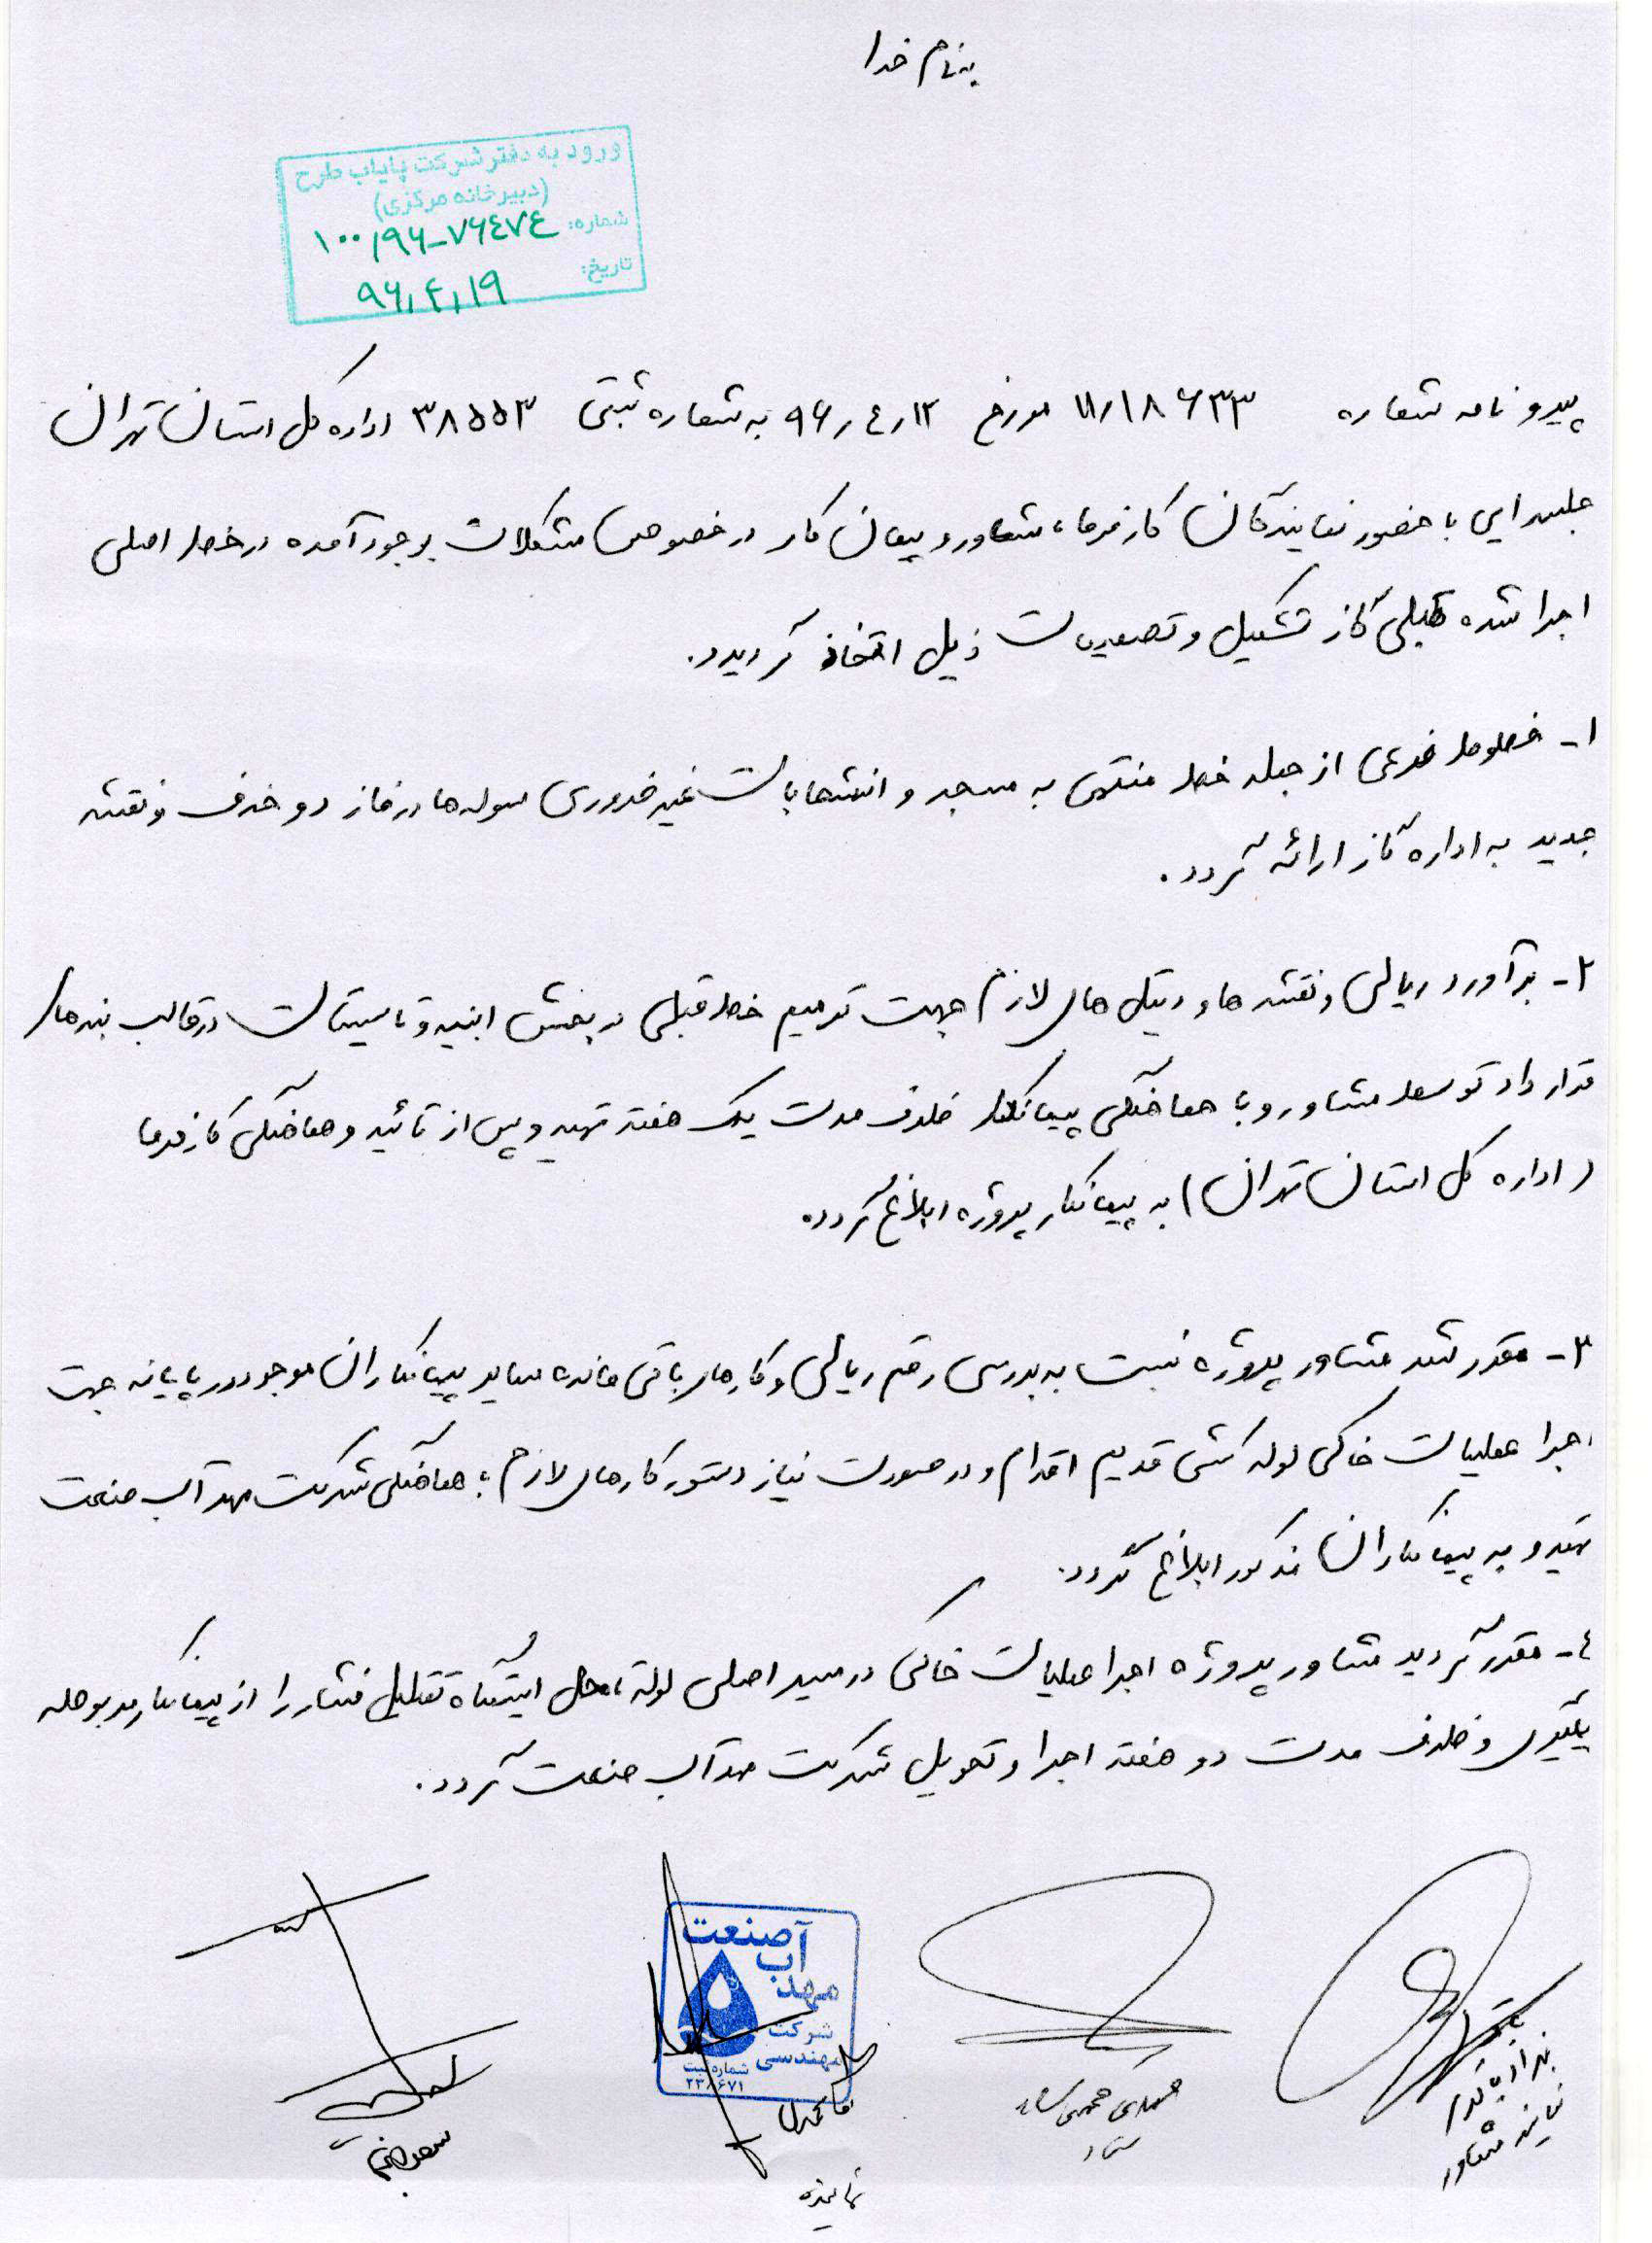 به نام خدا
ورود به دفتر شرکت پایاب طرح
(دبیرخانه مرکزی)
شماره: ۱۰۰/۹۶-۷۶٤۷٤
تاریخ: ۹۶/٤/۱۹
پیرو نامه شماره ۱۱/۱۸۶۳۳ مورخ ۹۶/٤/۱۲ به شماره ثبتی ۳۸۵۵۳ اداره کل استان تهران
جلسه ایی با حضور نمایندگان کارفرما، مشاور و پیمان کار در خصوص مشکلات بوجود آمده در خط اصلی
اجرا شده قبلی گاز تشکیل و تصمیمات ذیل اتخاذ گردید.
۱- خطوط فرعی از جمله خط منتهی به مسجد و انشعابات غیر ضروری سوله ها در فاز دو حذف و نقشه
جدید به اداره گاز ارائه گردد.
۲- برآورد ریالی و نقشه ها و دیتیل های لازم جهت ترمیم خط قبلی در بخش ابنیه و تاسیسات در قالب بندهای
قرارداد توسط مشاور و با هماهنگی پیمانکار ظرف مدت یک هفته تهیه و پس از تائید و هماهنگی کارفرما
(اداره کل استان تهران) به پیمانکار پروژه ابلاغ گردد.
۳- مقرر شد مشاور پروژه نسبت به بررسی رقم ریالی و کارهای باقی مانده سایر پیمانکاران موجود در پایانه جهت
اجرا عملیات خاکی لوله کشی قدیم اقدام و در صورت نیاز دستور کارهای لازم با هماهنگی شرکت مهد آب صنعت
تهیه و به پیمانکاران مذکور ابلاغ گردد.
٤- مقرر گردید مشاور پروژه اجرا عملیات خاکی در مسیر اصلی لوله تا محل ایستگاه تقلیل فشار را از پیمانکار مربوطه
پیگیری و ظرف مدت دو هفته اجرا و تحویل شرکت مهد آب صنعت گردد.
نماینده مشاور
آب صنعت
مهد
شرکت
مهندسی
شماره ثبت
نماینده